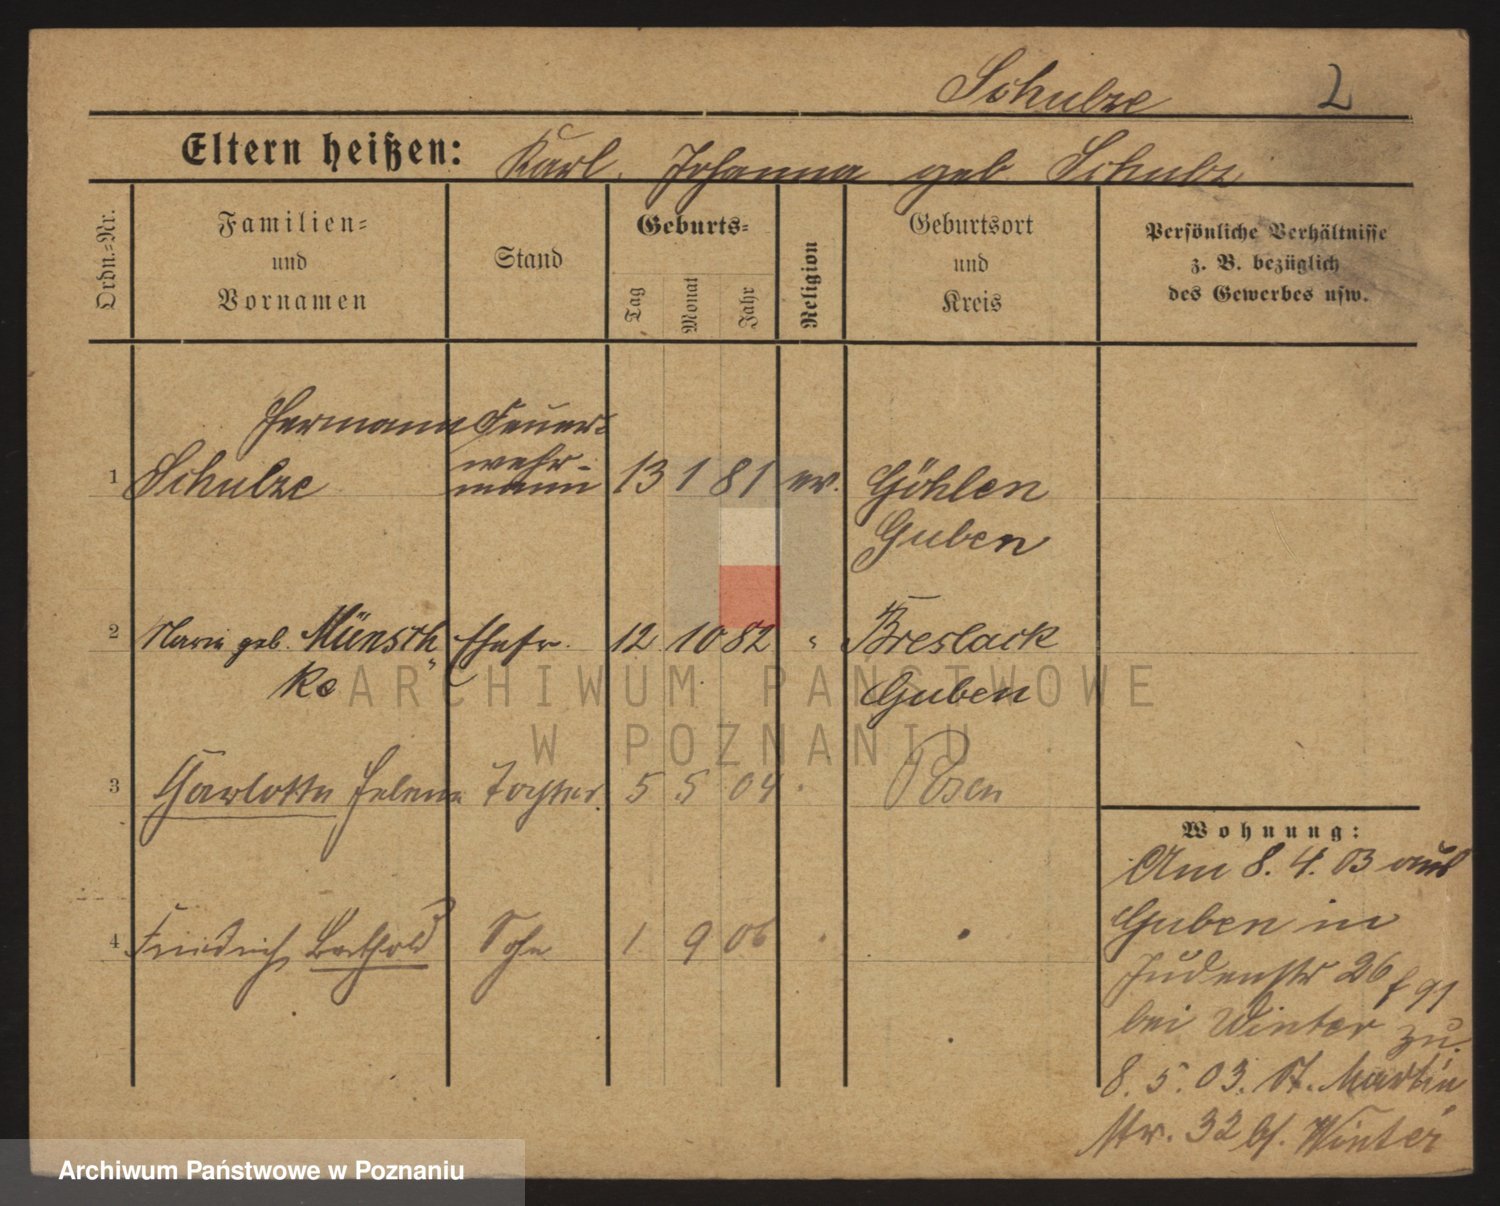 Schulze 2
Eltern heißen: Karl. Johanna geb Schulz
Ordn.-Nr.
Familien-
und
Vornamen
Stand
Geburts-
Tag
Monat
Jahr
Religion
Geburtsort
und
Kreis
Persönliche Verhältnisse
z. B. bezüglich
des Gewerbes usw.
Hermann Feuer-
1 Schulze wehr- 13 1 81 ev. Göhlen
mann
Guben
2 Marie geb. Münsch Ehefr. 12 10 82 " Breslack
ke Guben
ARCHIWUM PAŃSTWOWE
W POZNANIU
3 Charlotte Helene Tochter 5 5 04 Posen
Wohnung:
Am 8. 4. 03 aus
4 Friedrich Berthold Sohn 1 9 06
Guben in
Judenstr 26
bei Winter zu.
8. 5. 03. St. Martin
Str. 32 bf. Winter
Archiwum Państwowe w Poznaniu